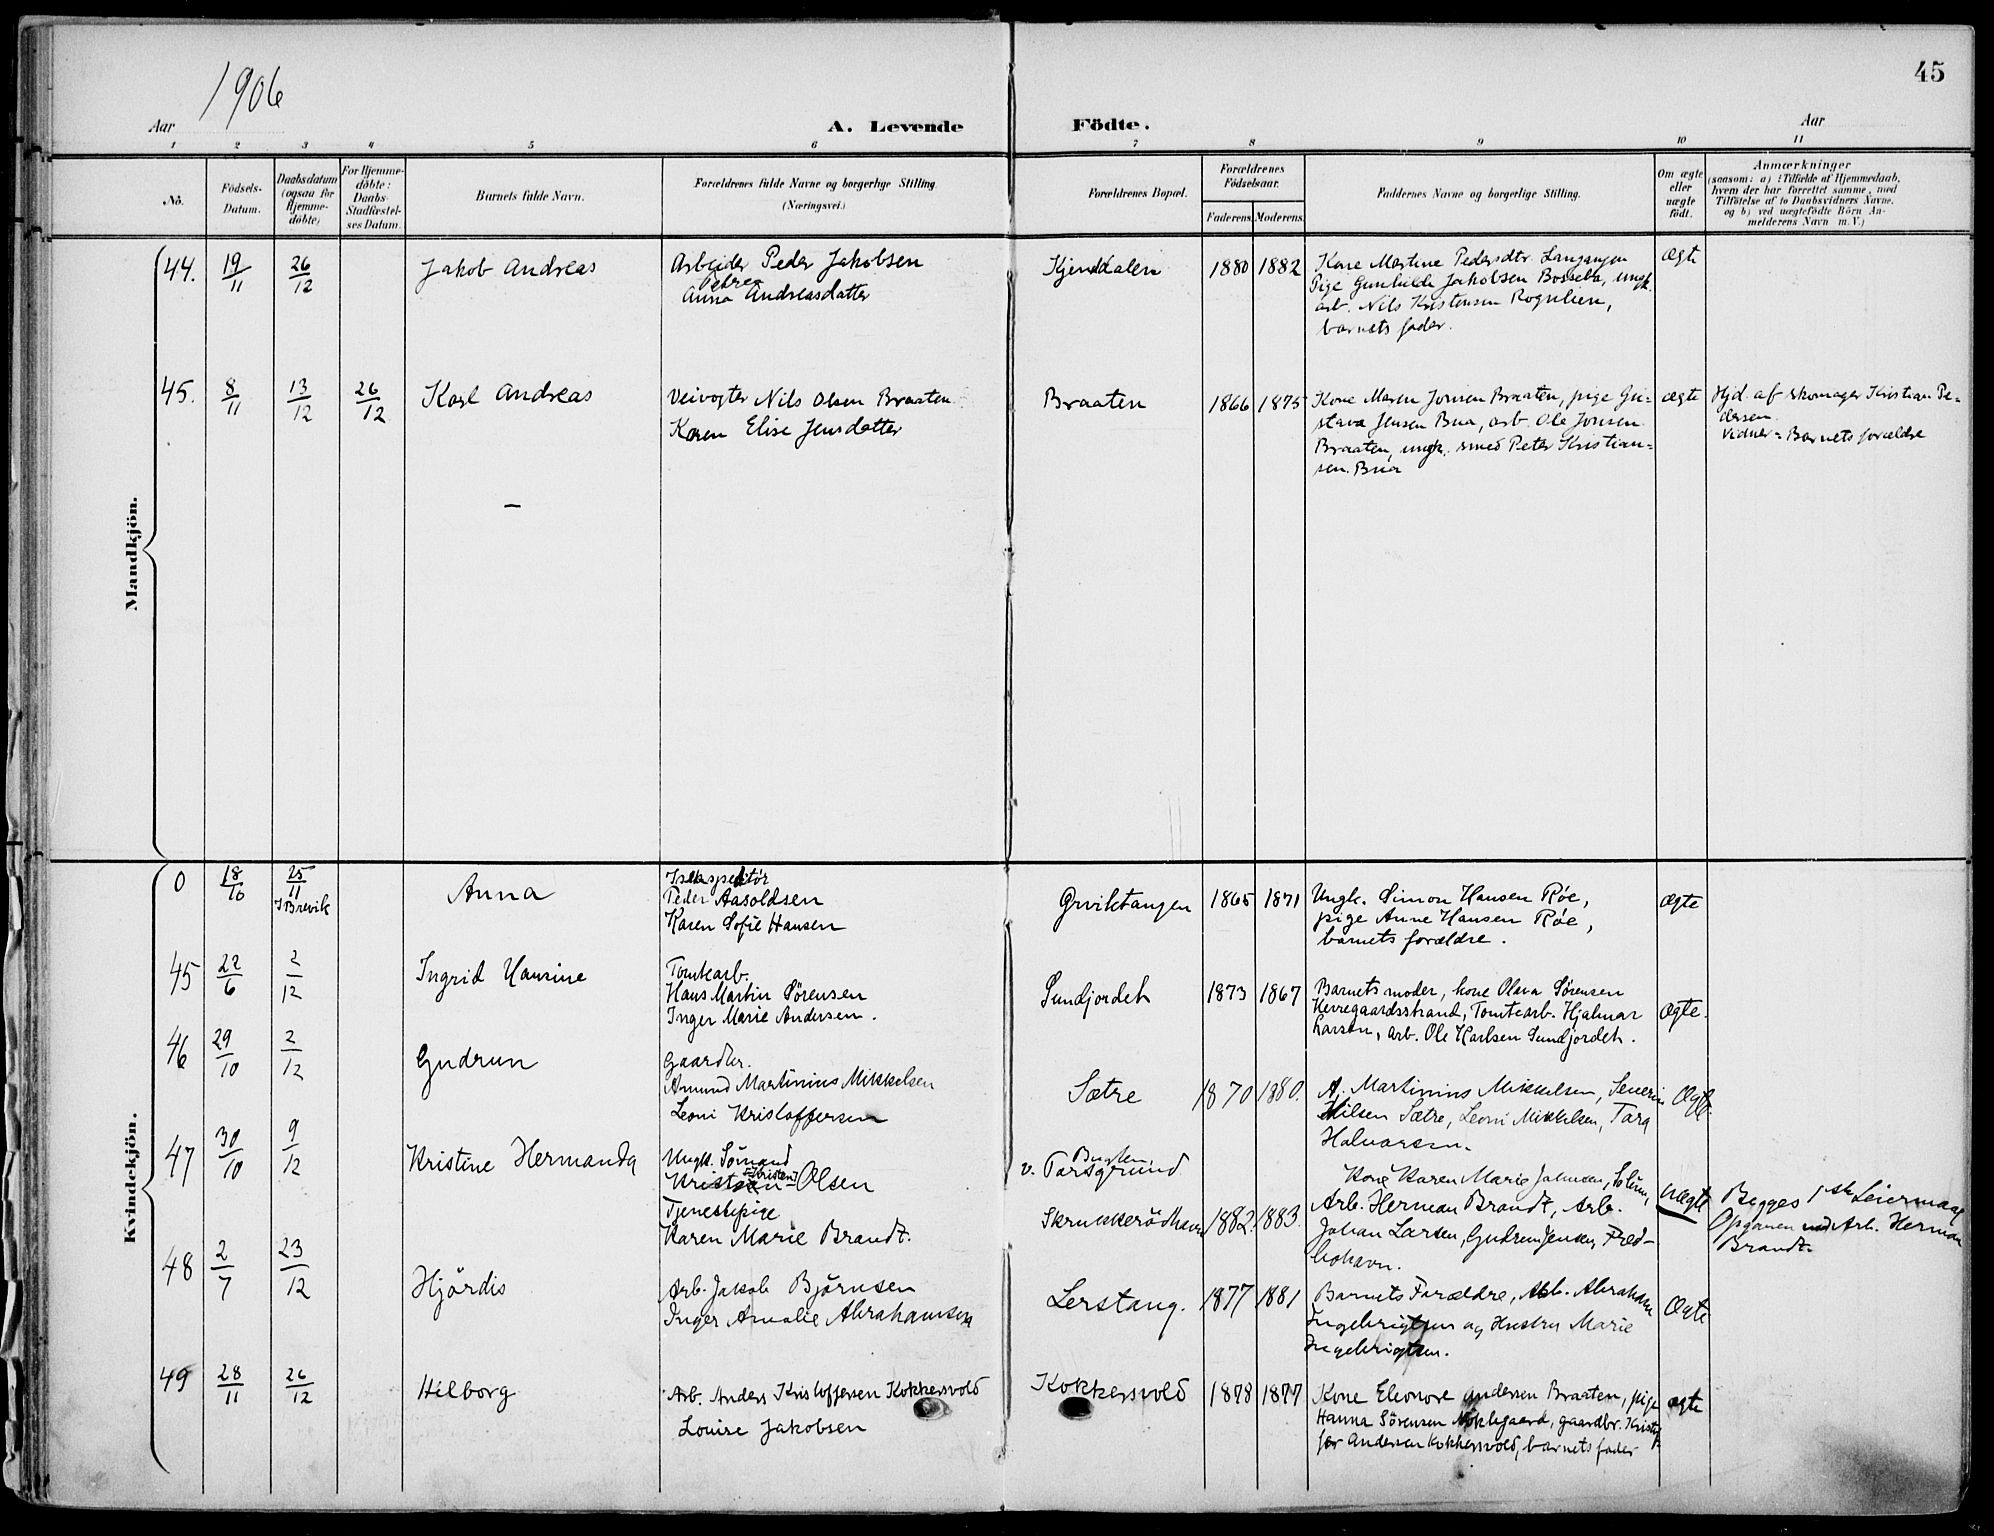 45
1906
Aar
A. Levende Födte.
Aar
1 2 3 4 5 6 7 8 9 10 11
No.
Födsels-Datum.
Daabsdatum (ogsaa for Hjemme-döbte)
For Hjemme-döbte: Daabs-Stadfæstel-ses Datum.
Barnets fulde Navn.
Forældrenes fulde Navne og borgerlige Stilling (Næringsvei.)
Forældrenes Bopæl.
Forældrenes Födselsaar.
Faderens. Moderens.
Faddernes Navne og borgerlige Stilling.
Om ægte eller uægte födt.
Anmærkninger
(saasom: a) i Tilfælde af Hjemmedaab,
hvem der har forrettet samme, med
Tilföielse af to Daabsvidners Navne.
og b) ved uægtefödte Börn An-
melderens Navn m. V.)
Mandkjön.
44. 19/11 26/12 Jakob Andreas
Arbeider Peder Jakobsen
Petrea
Anna Andreasdatter
Kjendalen 1880 1882
Kone Martine Pedersdtr. Langangen
Pige Gunhilde Jakobsen Bosseba, ungk.
arb. Nils Kristensen Rognlien,
barnets fader.
ægte
45. 8/11 13/12 26/12 Karl Andreas
Veivogter Nils Olsen Braaten
Karen Elise Jensdatter
Braaten 1866 1875
Kone Maren Jonsen Braaten, pige Gu-
stava Jensen Bua, arb. Ole Jonsen
Braaten, ungk. smed Peter Kristian-
sen. Bua
ægte
Hjd. af skomager Kristian Pe-
dersen.
Vidner = Barnets forældre
—
Kvindekjön.
0 18/10 25/11 I Brevik Anna
Peder Aasoldsen
Karen Sofie Hansen
1865 1871
Ungk. Simon Hansen Røe,
pige Anne Hansen Røe,
barnets forældre.
ægte
45 22/6 2/12 Ingrid Hansine
Tomtearb.
Hans Martin Sørensen
Inger Marie Andersen.
Sundjordet 1873 1867
Barnets moder, kone Olava Sørensen
Herregaardsstrand, Tomtearb. Hjalmar
Larsen, arb. Ole Karlsen Sundjordet.
Ægte.
46 29/10 2/12 Gudrun
Gaardbr.
Amund Martinius Mikkelsen
Leoni Kristoffersen
Sætre 1870 1880.
A. Martinius Mikkelsen, Severin
Nilsen Sætre, Leoni Mikkelsen, Tara
Halvorsen.
Ægte.
47 30/10 9/12 Kristine Hermanda
Ungk. Sömand
[Kristen]
Olsen
Tjenestepige
Karen Marie Brandt.
Bugten
v. Torsgrund
Skrukkerödhavn 1882. 1883.
Kone Karen Marie Johnsen, Solum,
Arb. Herman Brandt, Arb.
Johan Larsen, Gudrun Jensen, Fred-
bohavn.
uægte
Begges 1ste Leiermaal
Opgaven ved Arb. Herman
Brandt.
48 2/7 23/12 Hjördis
Arb. Jakob Björnsen
Inger Amalie Abrahamsen
Lerstang. 1877 1881
Barnets Forældre, Arb. Abraham
Ingebrigtsen og Hustru Marie
Ingebrigtsen.
Ægte
49 28/11 26/12 Hilborg
Arb. Anders Kristoffersen Kokkersvold
Louise Jakobsen
Kokkersvold 1878 1877
Kone Eleonore Andersen Braaten, pige
Hanna Sörensen Noklegaard, gaardbr. Kristof-
fer Andersen Kokkersvold, barnets fader
ægte